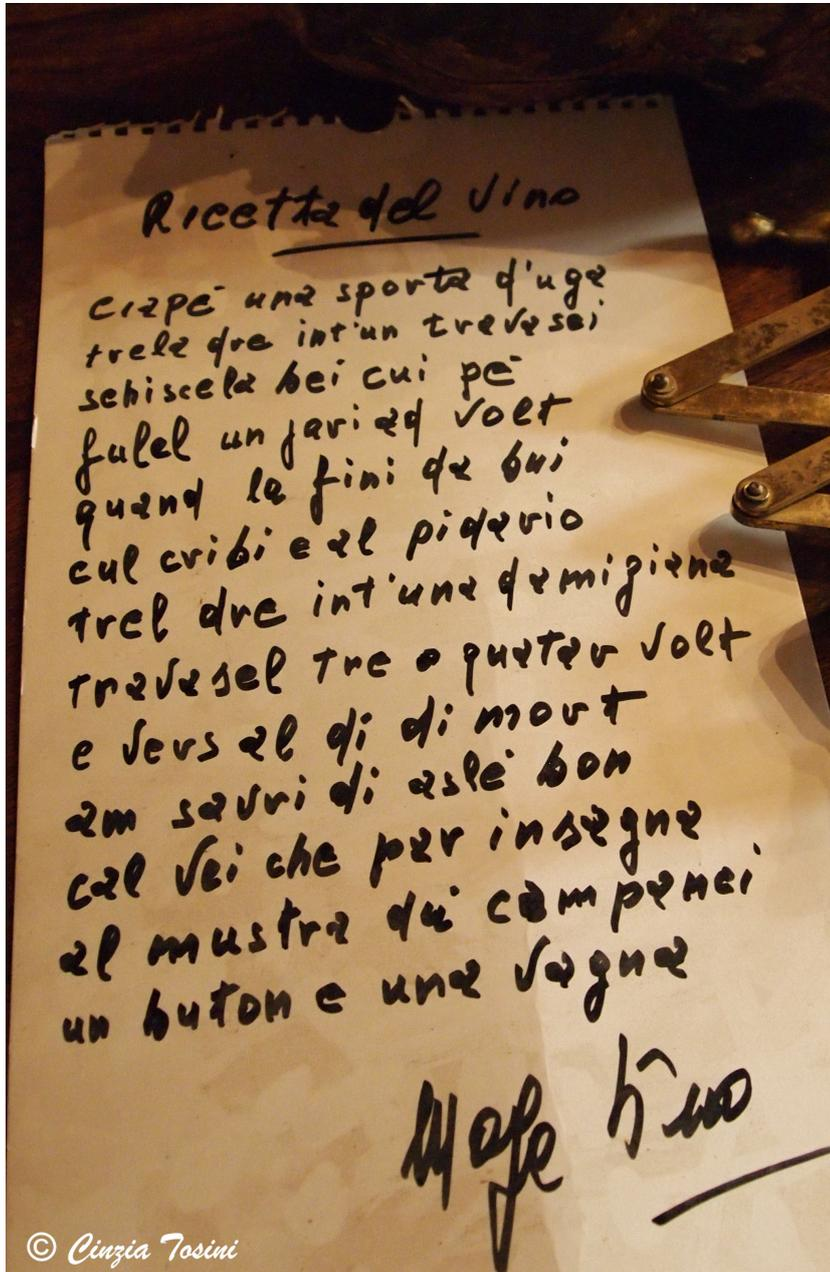 Ricetta del Vino
ciapè una sporta d'uga
trela dre int'un travasei
schiscela bei cui pè
fulel un pari ad volt
quand la fini da bui
cul cribi e al pidario
trel dre int'una damigiana
travasel tre o quatar volt
e vers al di di mort
am savri di aslè bon
cal Vei che par insegna
al mustra dü campanei
un buton e una vagna
© Cinzia Tosini